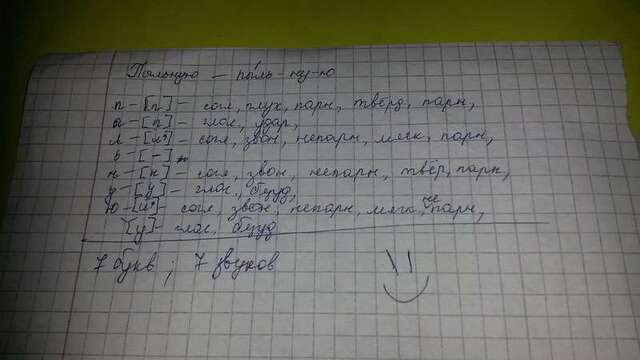 Пыльную – пы́ль-ну-ю
п – [п] – согл, глух, парн, твёрд, парн,
ы – [ы] – глас, удар,
л – [л'] – согл, звон, непарн, мягк, парн,
ь – [–]
н – [н] – согл, звон, непарн, твёр, парн,
у – [у] – глас, безуд,
ю – [й'] – согл, звон, непарн, мягк, непарн,
[у] – глас, безуд
7 букв; 7 звуков